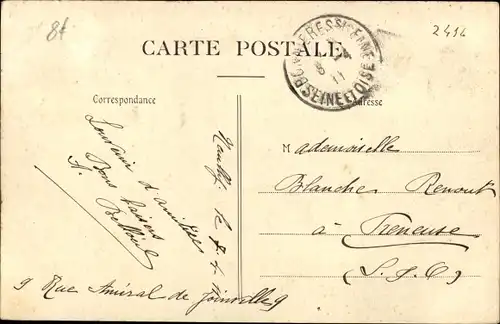 8f
2414
CARTE POSTALE
BONNIERES SEINE ET OISE
8 - 4
11
Correspondance
Adresse
Souvenir d'amitiés
Bons baisers
A.
Neuilly le 8.4.11
9 Rue Amiral de Joinville 9
Mademoiselle
Blanche Renout
à Freneuse
(S. & O)